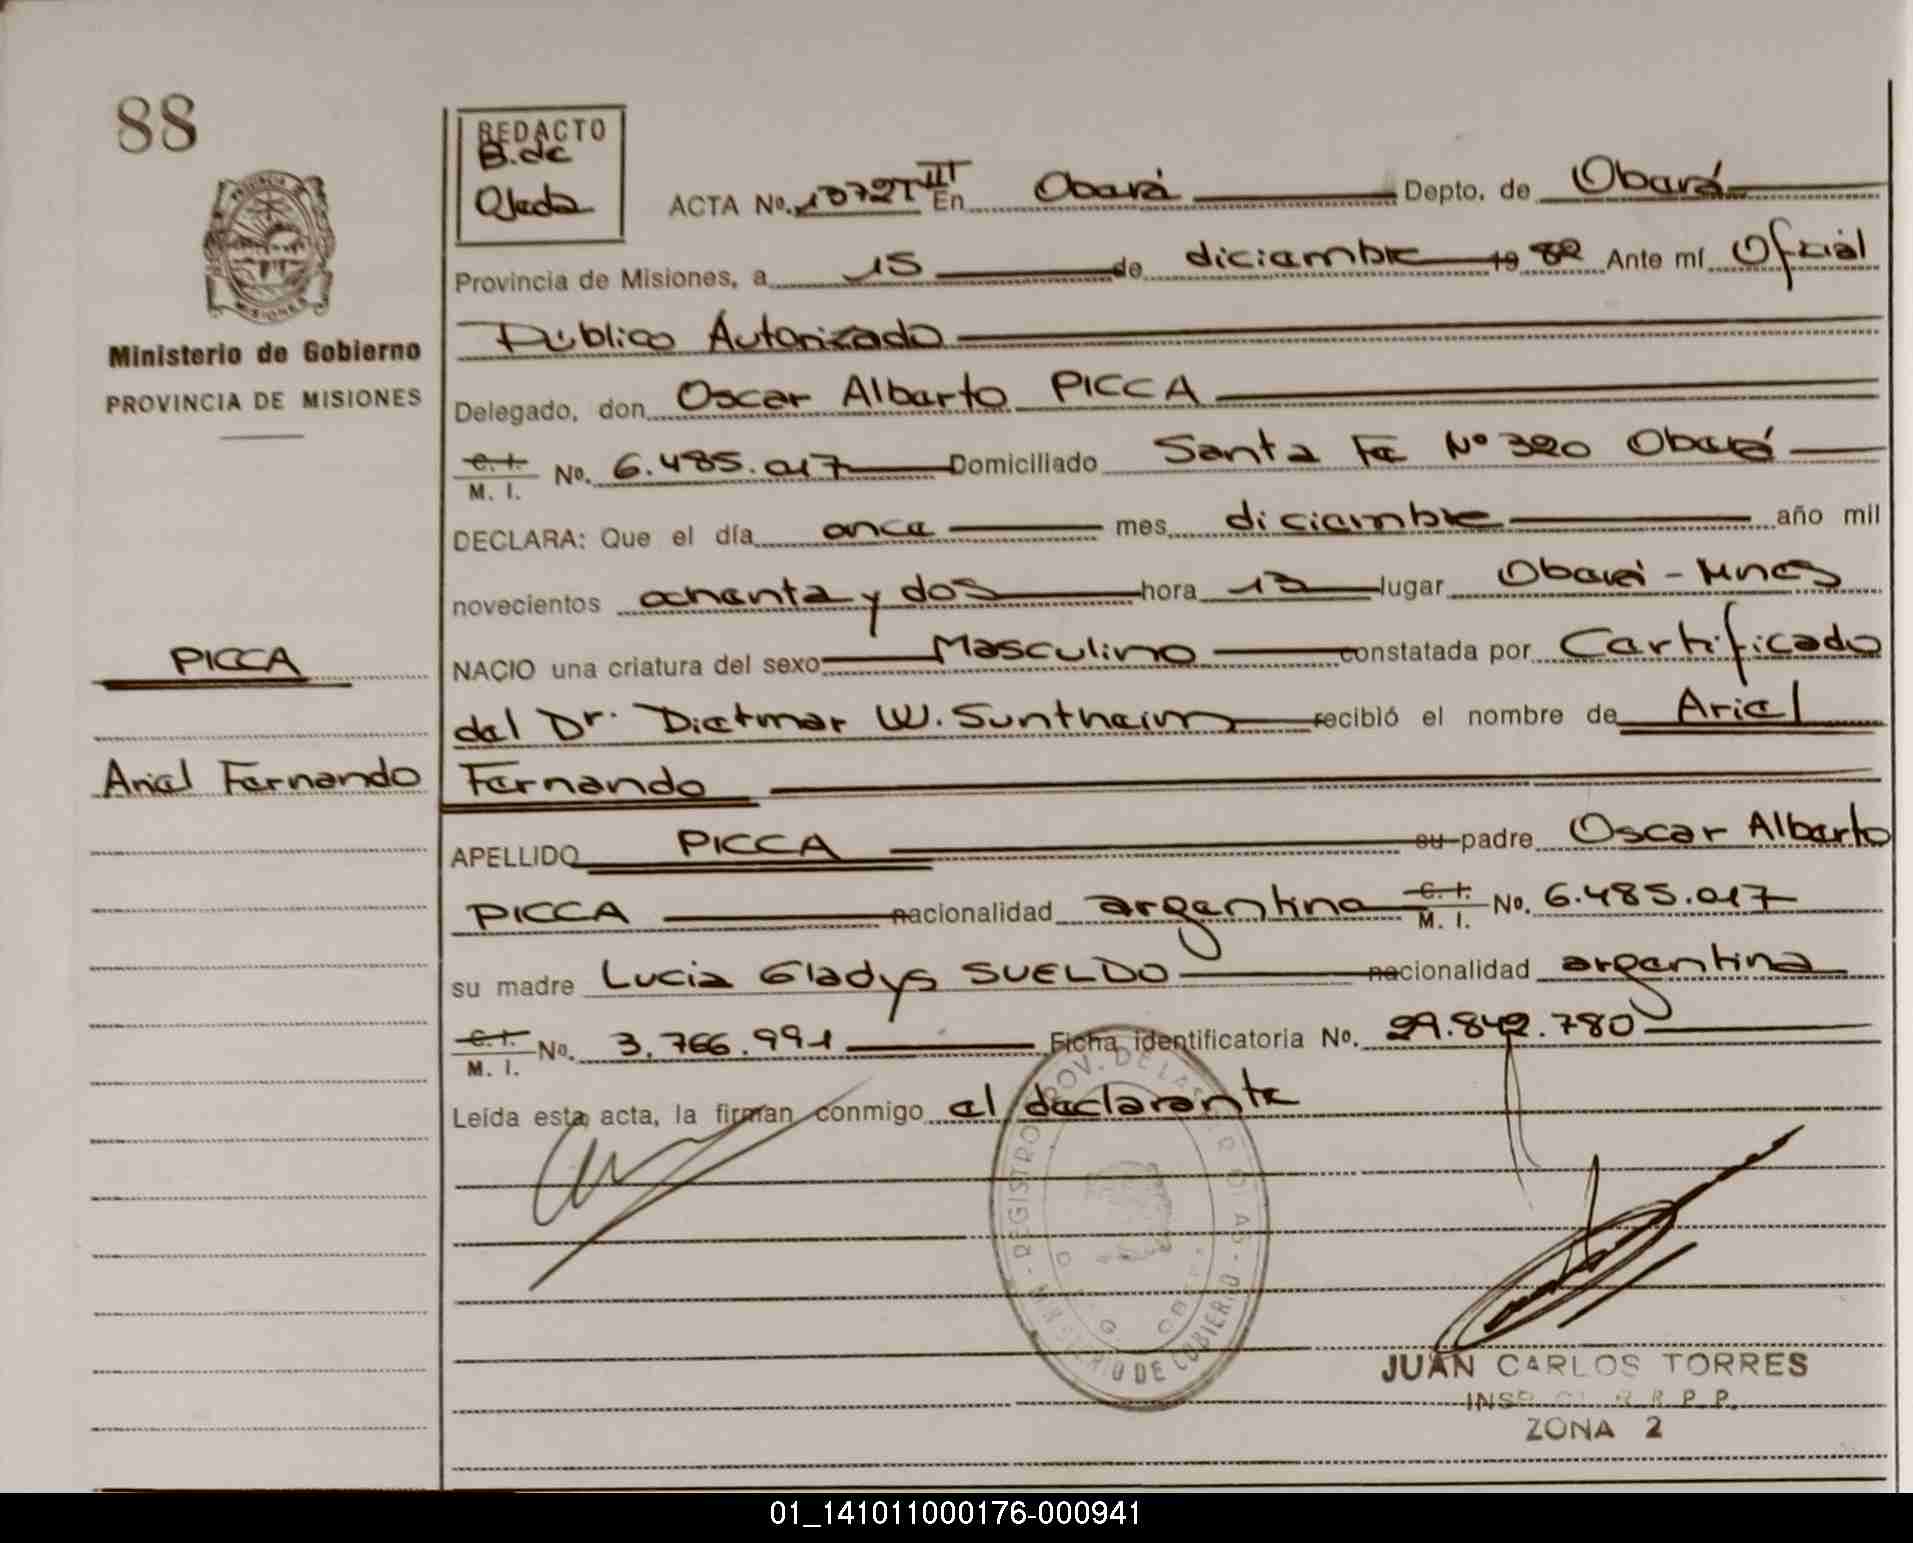 88
PROVINCIA DE
MISIONES
Ministerio de Gobierno
PROVINCIA DE MISIONES
PICCA
Ariel Fernando
REDACTO
B. de
Ojeda
ACTA Nº. 1372 T III En Oberá Depto. de Oberá
Provincia de Misiones, a 15 de diciembre 19 82 Ante mí Oficial
Público Autorizado
Delegado, don Oscar Alberto PICCA
C. I. M. I. No. 6.485.017 Domiciliado Santa Fe Nº 320 Oberá
DECLARA: Que el día once mes diciembre año mil
novecientos ochenta y dos hora 13 lugar Oberá - Mnes
NACIO una criatura del sexo Masculino constatada por Certificado
del Dr. Dietmar W. Suntheim recibió el nombre de Ariel
Fernando
APELLIDO PICCA su padre Oscar Alberto
PICCA nacionalidad argentina C. I. M. I. No. 6.485.017
su madre Lucia Gladys SUELDO nacionalidad argentina
C. I. M. I. No. 3.766.991 Ficha identificatoria No. 29.842.780
Leída esta acta, la firman conmigo el declarante
REGISTRO PROV. DE LAS PERSONAS
MINISTERIO DE GOBIERNO
JUAN CARLOS TORRES
R.P.P.
ZONA 2
01_141011000176-000941